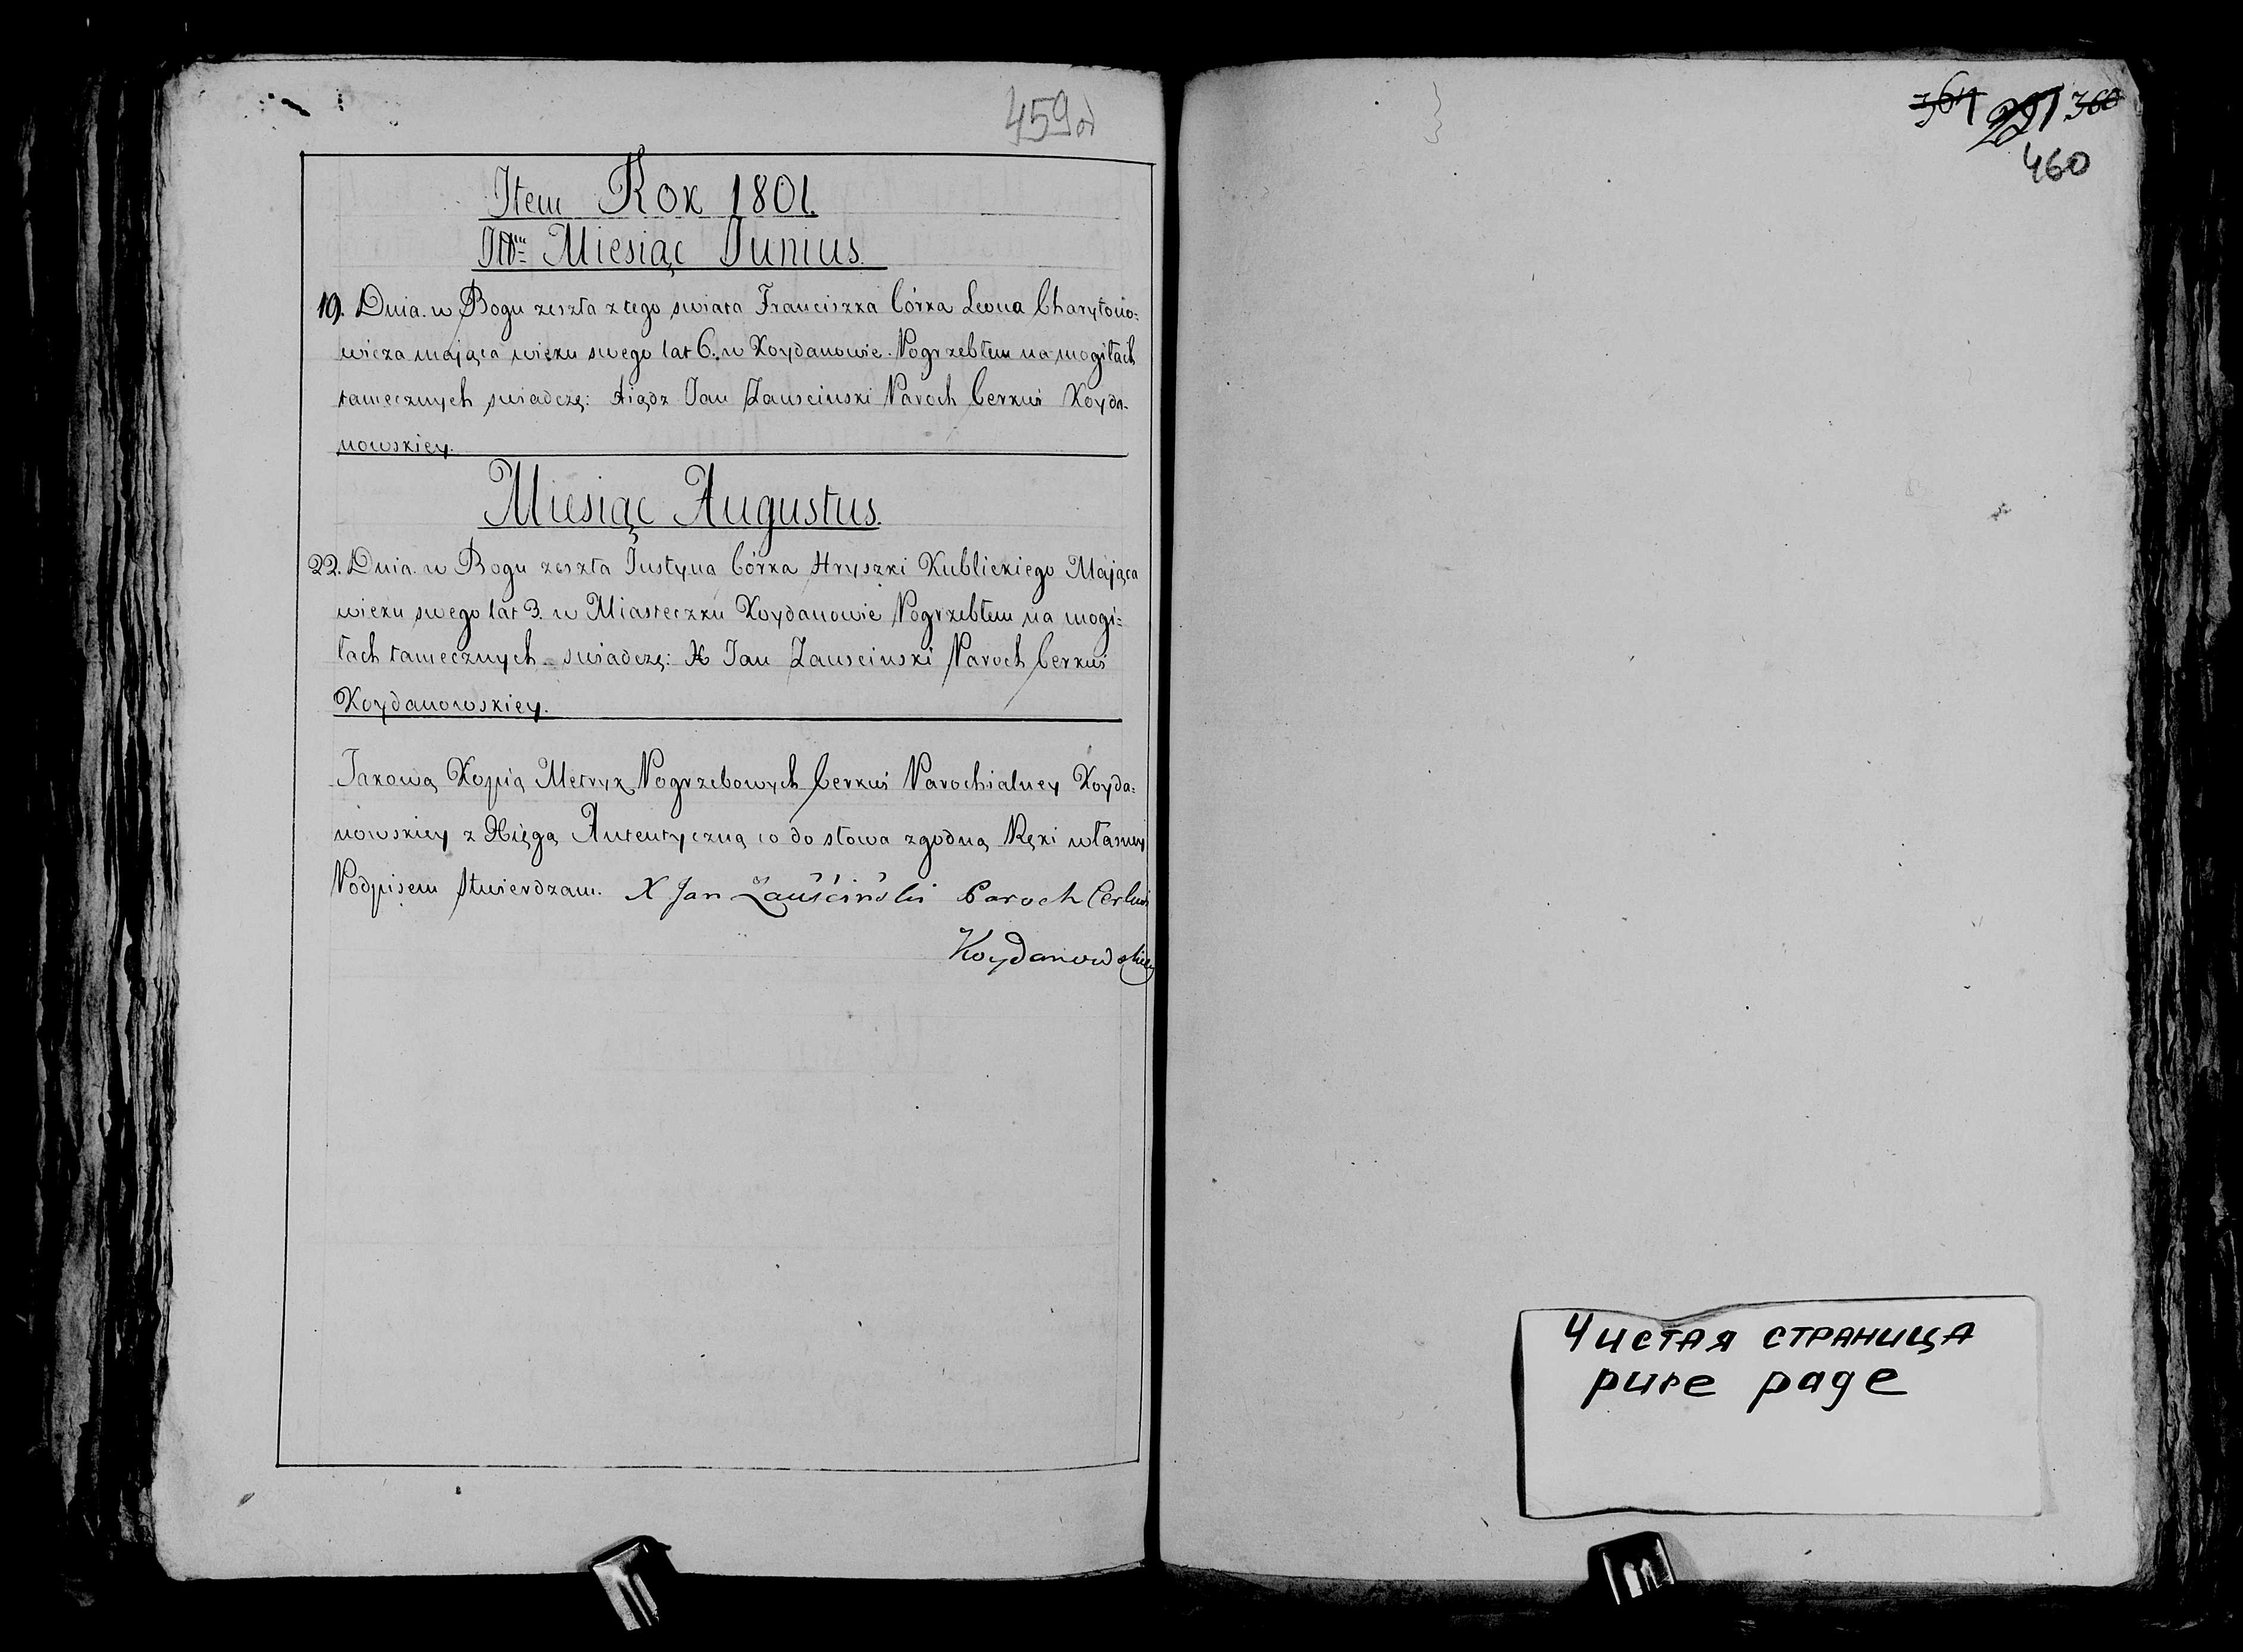 459об
Item Rok 1801.
Itm Miesiąc Junius.
19. Dnia. w Bogu zeszła z tego swiata Franciszka Córka Leona Charytono=
wicza mająca wieku swego lat 6. w Koydanowie. Pogrzebłem na mogiłach
tamecznych swiadczę: Xiądz Jan Zausciński Paroch Cerkwi Koyda-
nowskiey.
Miesiąc Augustus.
22. Dnia. w Bogu zeszła Justyna Córka Hryszki Kublickiego Mająca
wieku swego lat 3. w Miasteczku Koydanowie Pogrzebłem na mogi=
łach tamecznych swiadczę: X Jan Zauscinski Paroch Cerkwi
Koydanowskiey.
Jakową Kopią Metryk Pogrzebowych Cerkwi Parochialney Koyda=
nowskiey z Xięgą Autentyczną co do słowa zgodną Ręki własney
Podpisem stwierdzam. X Jan Zauściński Paroch Cerkwi
Koydanowskiey
364 291 360
460
Чистая страница
pure page